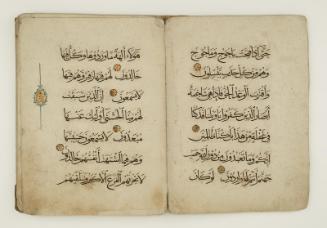 حَتَّى إِذَا فُتِحَتْ يَاجُوجُ وَمَاجُوجُ
وَهُمْ مِنْ كُلِّ حَدَبٍ يَنْسِلُونَ
وَاقْتَرَبَ الْوَعْدُ الْحَقُّ فَإِذَا هِيَ شَاخِصَةٌ
أَبْصَارُ الَّذِينَ كَفَرُوا يَا وَيْلَنَا قَدْ كُنَّا
فِي غَفْلَةٍ مِنْ هَذَا بَلْ كُنَّا ظَالِمِينَ
إِنَّكُمْ وَمَا تَعْبُدُونَ مِنْ دُونِ اللَّهِ حَصَبُ
جَهَنَّمَ أَنْتُمْ لَهَا وَارِدُونَ لَوْ كَانَ
هَؤُلَاءِ آلِهَةً مَا وَرَدُوهَا وَكُلٌّ فِيهَا
خَالِدُونَ لَهُمْ فِيهَا زَفِيرٌ وَهُمْ فِيهَا
لَا يَسْمَعُونَ إِنَّ الَّذِينَ سَبَقَتْ
لَهُمْ مِنَّا الْحُسْنَى أُولَئِكَ عَنْهَا
مُبْعَدُونَ لَا يَسْمَعُونَ حَسِيسَهَا
وَهُمْ فِي مَا اشْتَهَتْ أَنْفُسُهُمْ خَالِدُونَ
لَا يَحْزُنُهُمُ الْفَزَعُ الْأَكْبَرُ وَتَتَلَقَّاهُمُ